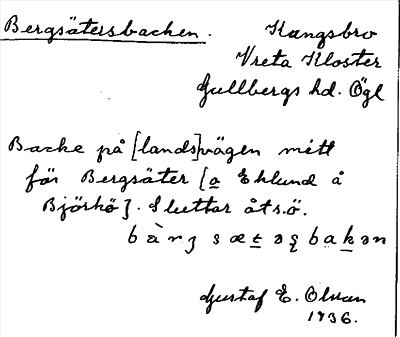 Bergsätersbacken.
Kungsbro
Vreta Kloster
Gullbergs hd. Ögl
Backe på [lands]vägen mitt
för Bergsäter [o Eklund å
Björkö]. Sluttar åt s.ö.
Gustaf E. Olsson
1936.